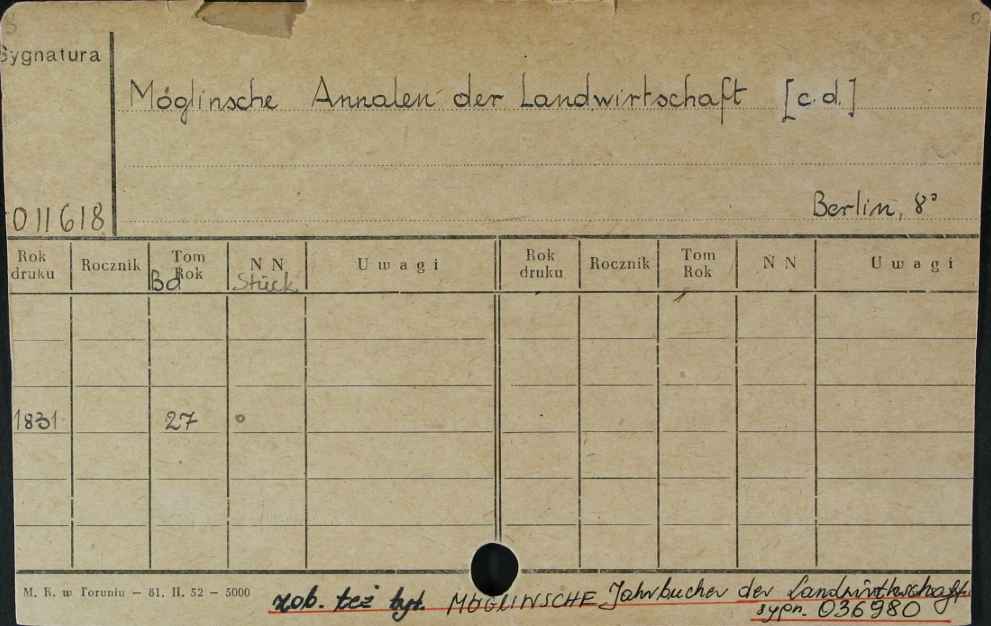 Sygnatura
Möglinsche Annalen der Landwirtschaft [c.d.]
Berlin, 8°
011618
Rok druku Rocznik Tom Rok N N Uwagi Rok druku Rocznik Tom Rok N N Uwagi
Bd Stück
1831 27 °
M. K. w Toruniu — 81. II. 52 — 5000
zob. też tyt. MÖGLINSCHE Jahrbucher der Landwirthschaft
sygn. 036980